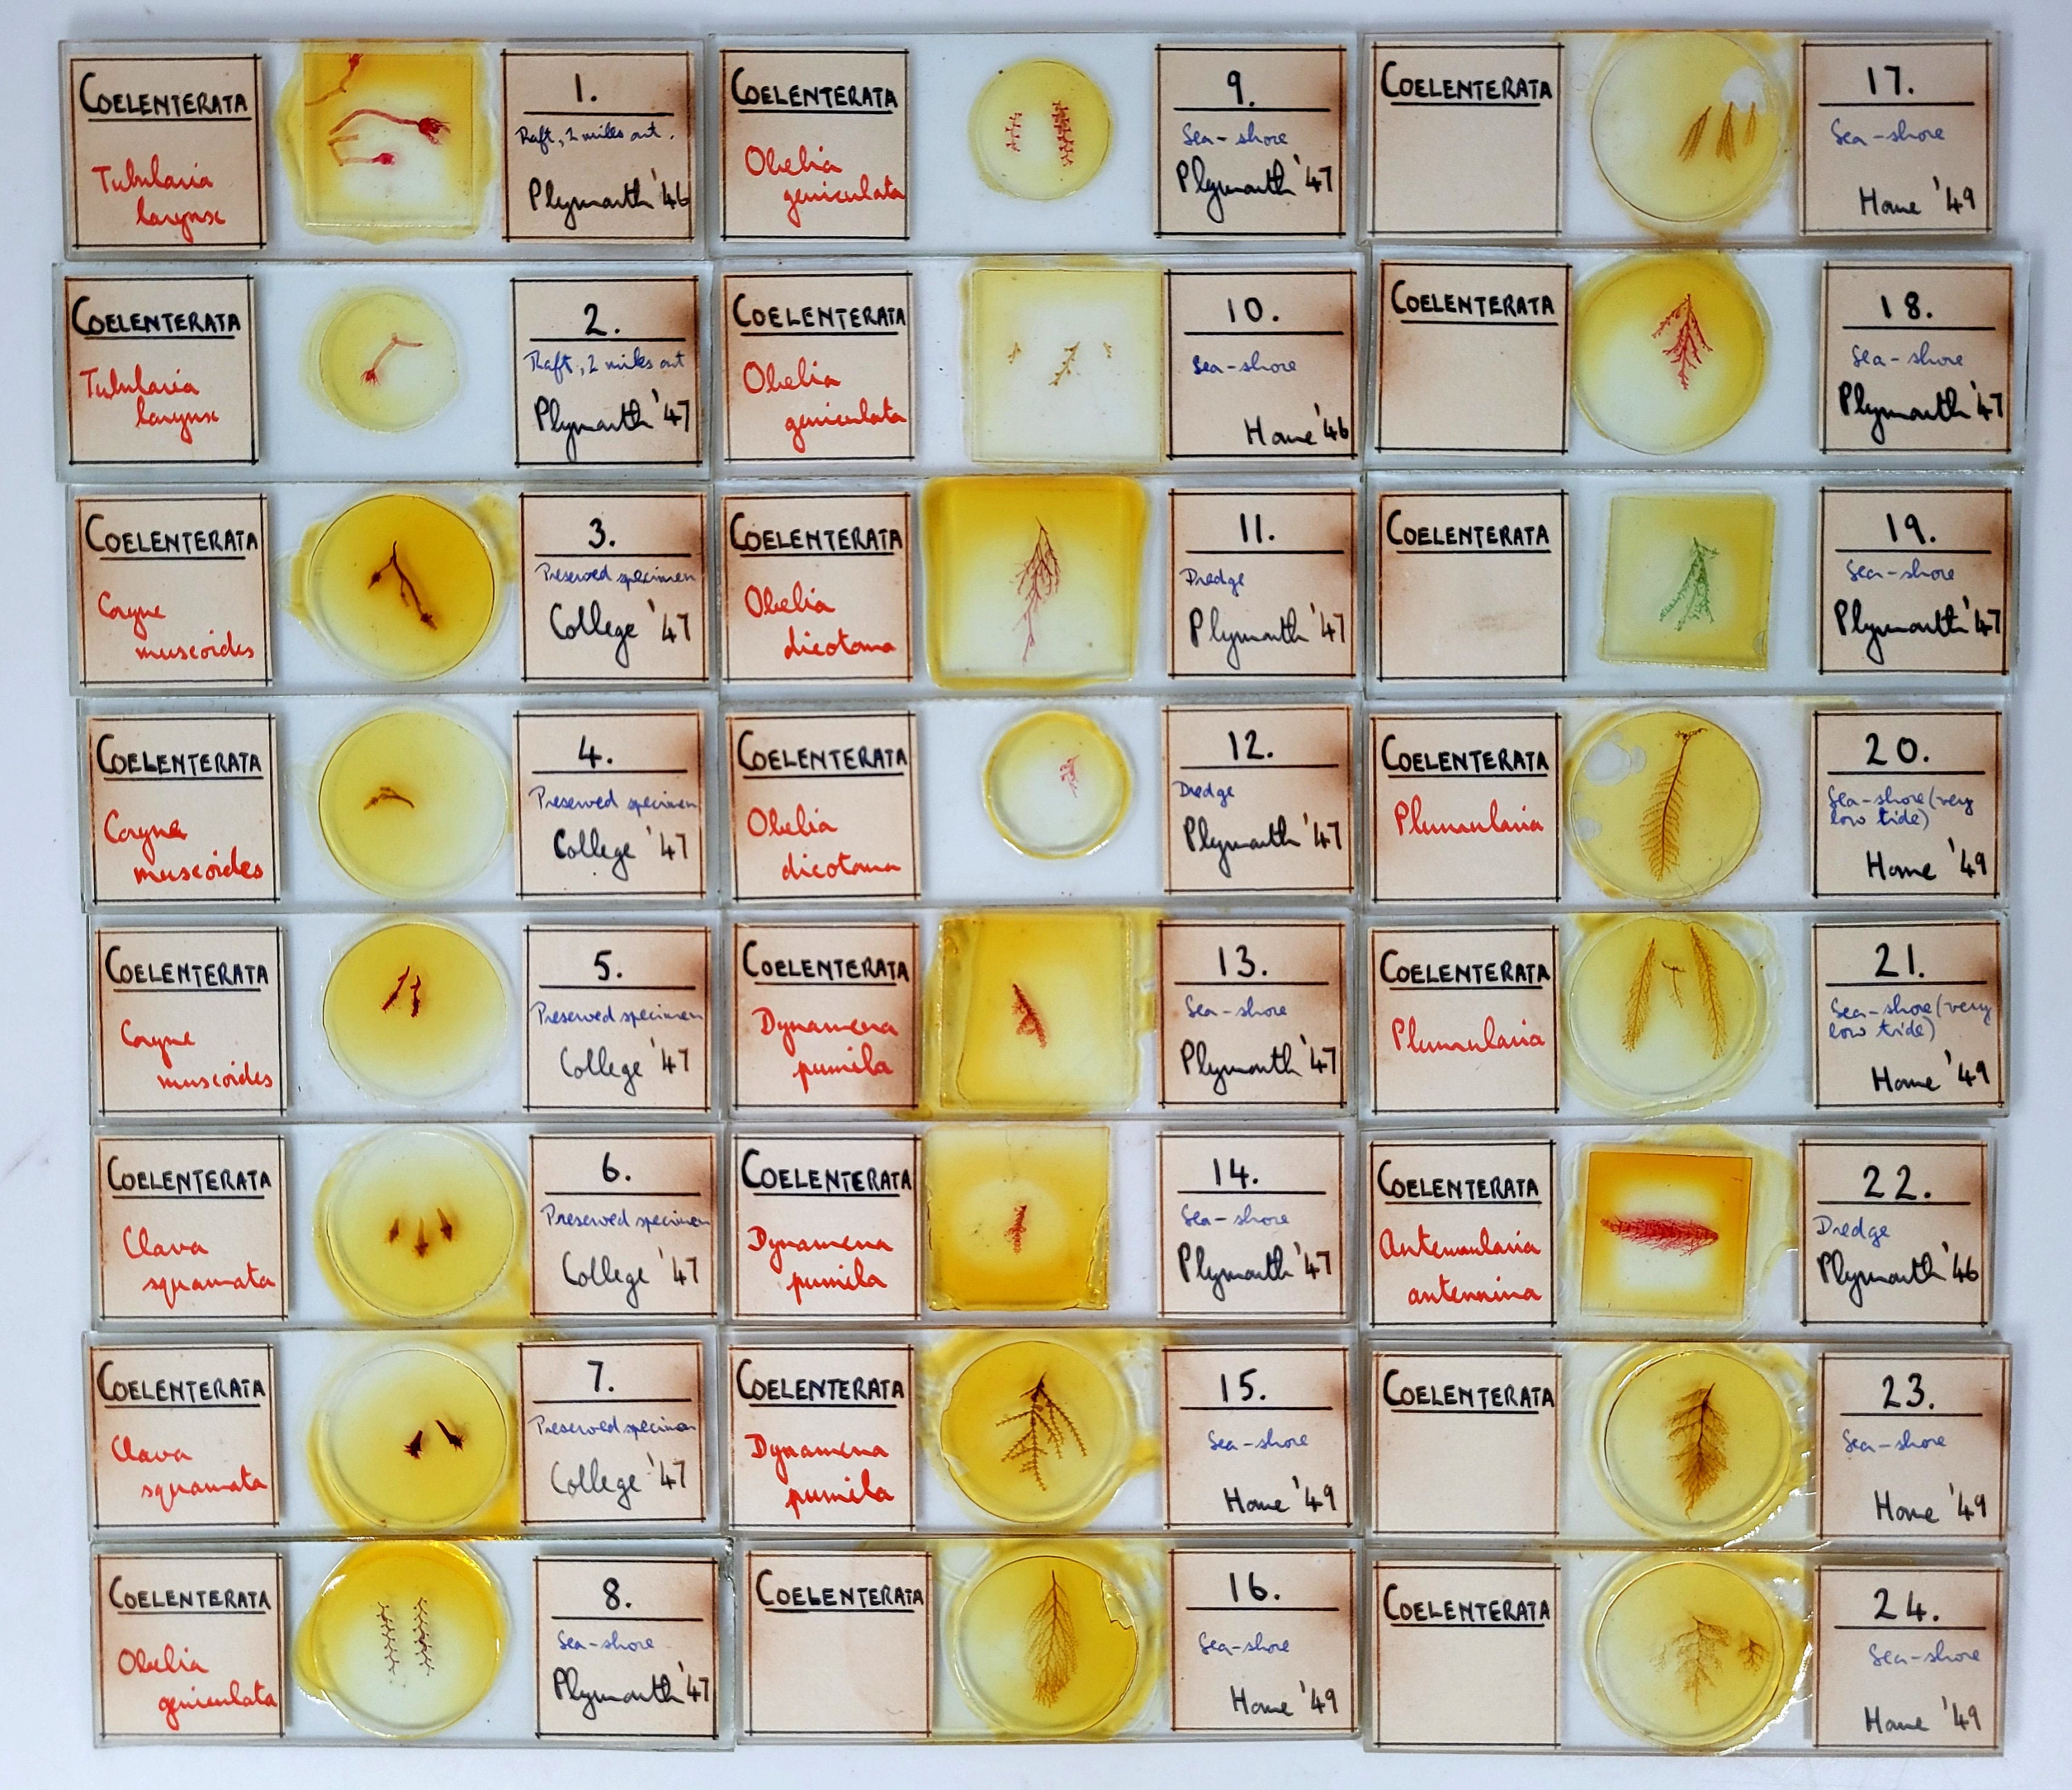 COELENTERATA
Tubularia
larynx
1.
Raft, 2 miles out.
Plymouth '46
COELENTERATA
Tubularia
larynx
2.
Raft, 2 miles out
Plymouth '47
COELENTERATA
Coryne
muscoides
3.
Preserved specimen
College '47
COELENTERATA
Coryne
muscoides
4.
Preserved specimen
College '47
COELENTERATA
Coryne
muscoides
5.
Preserved specimen
College '47
COELENTERATA
Clava
squamata
6.
Preserved specimen
College '47
COELENTERATA
Clava
squamata
7.
Preserved specimen
College '47
COELENTERATA
Obelia
geniculata
8.
Sea-shore
Plymouth '47
COELENTERATA
Obelia
geniculata
9.
Sea-shore
Plymouth '47
COELENTERATA
Obelia
geniculata
10.
Sea-shore
Home '46
COELENTERATA
Obelia
dicotoma
11.
Dredge
Plymouth '47
COELENTERATA
Obelia
dicotoma
12.
Dredge
Plymouth '47
COELENTERATA
Dynamena
pumila
13.
Sea-shore
Plymouth '47
COELENTERATA
Dynamena
pumila
14.
Sea-shore
Plymouth '47
COELENTERATA
Dynamena
pumila
15.
Sea-shore
Home '49
COELENTERATA
16.
Sea-shore
Home '49
COELENTERATA
17.
Sea-shore
Home '49
COELENTERATA
18.
Sea-shore
Plymouth '47
COELENTERATA
19.
Sea-shore
Plymouth '47
COELENTERATA
Plumularia
20.
Sea-shore (very
low tide)
Home '49
COELENTERATA
Plumularia
21.
Sea-shore (very
low tide)
Home '49
COELENTERATA
Antennularia
antennina
22.
Dredge
Plymouth '46
COELENTERATA
23.
Sea-shore
Home '49
COELENTERATA
24.
Sea-shore
Home '49